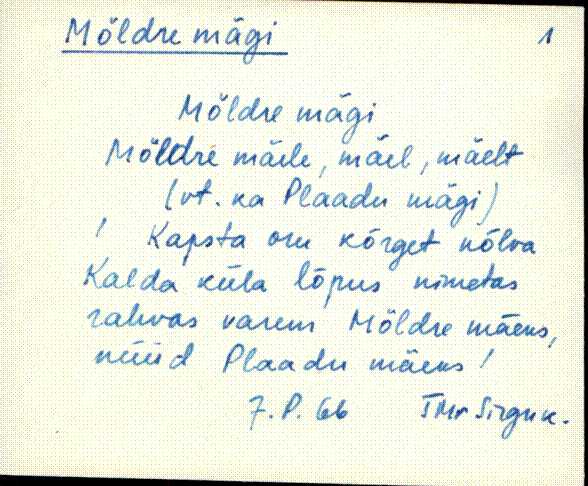 Möldre mägi 1
Möldre mägi
Möldre mäele, mäel, mäelt
(vt. ka Plaadu mägi)
! Kapsta oru kõrget nõlva
Kalda küla lõpus nimetas
rahvas varem Möldre mäeks,
nüüd Plaadu mäeks!
7. P. 66